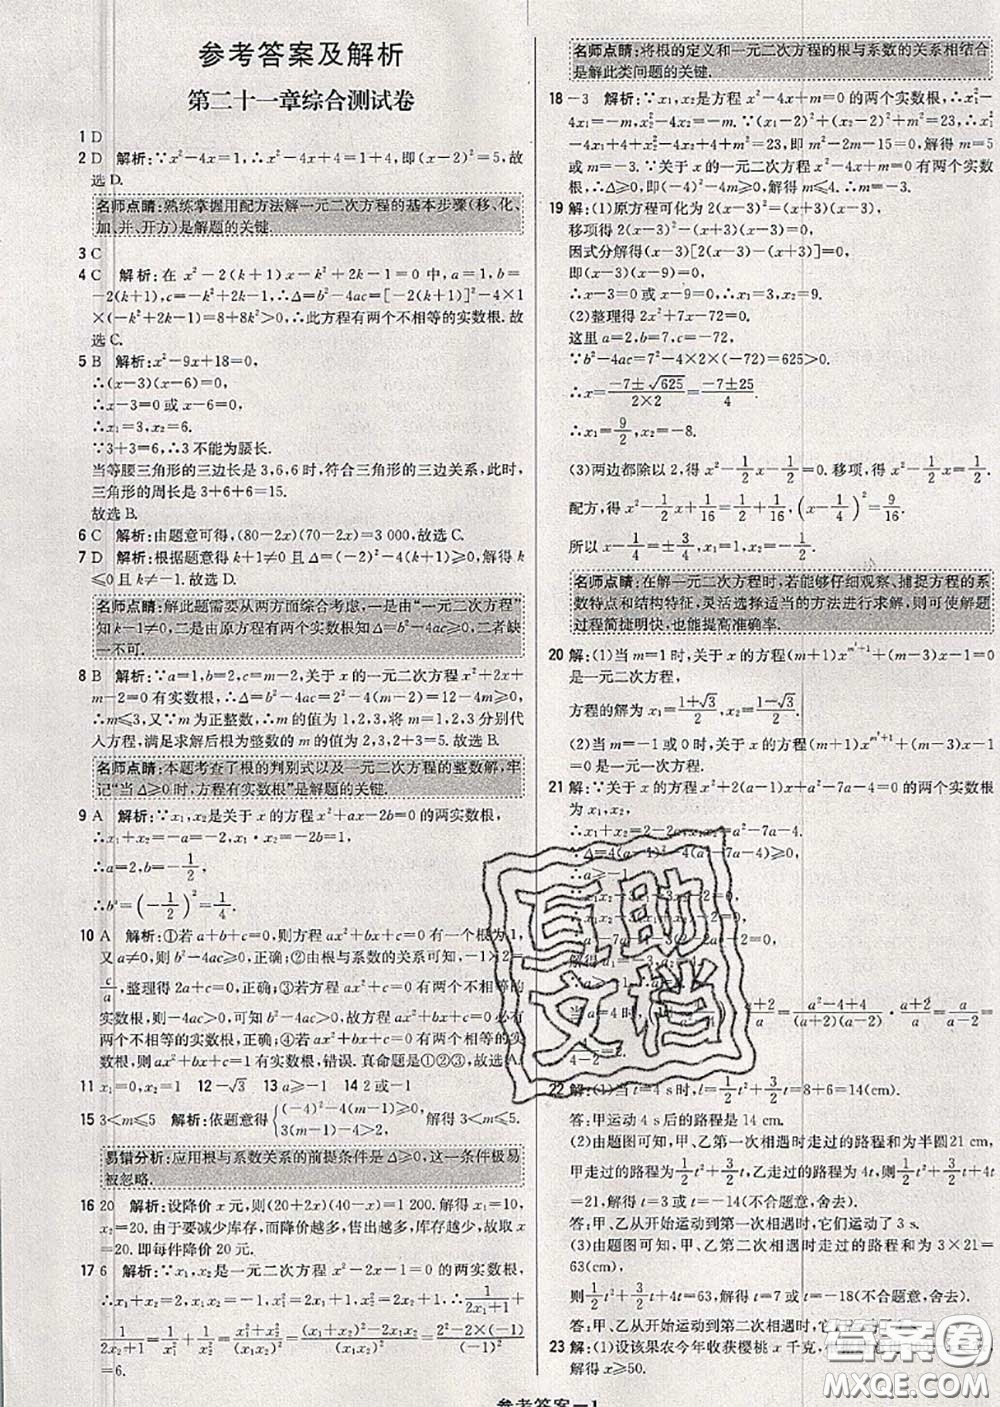 参考答案及解析
第二十一章综合测试卷
1 D
2 D 解析:∵x²-4x=1,∴x²-4x+4=1+4,即(x-2)²=5,故
选D.
名师点睛:熟练掌握用配方法解一元二次方程的基本步骤(移、化、
加、并、开方)是解题的关键.
3 C
4 C 解析:在 x²-2(k+1)x-k²+2k-1=0 中,a=1,b=
-2(k+1),c=-k²+2k-1,∴Δ=b²-4ac=[-2(k+1)]²-4×1
×(-k²+2k-1)=8+8k²>0,∴此方程有两个不相等的实数根.故
选C.
5 B 解析:x²-9x+18=0,
∴(x-3)(x-6)=0,
∴x-3=0 或 x-6=0,
∴x₁=3,x₂=6.
∵3+3=6,∴3 不能为腰长.
当等腰三角形的三边长是 3,6,6 时,符合三角形的三边关系,此时,
三角形的周长是 3+6+6=15.
故选B.
6 C 解析:由题意可得,(80-2x)(70-2x)=3 000,故选C.
7 D 解析:根据题意得 k+1≠0 且 Δ=(-2)²-4(k+1)≥0,解得 k
≤0 且 k≠-1.故选D.
名师点睛:解此题需要从两方面综合考虑,一是由“一元二次方程”
知 k-1≠0,二是由原方程有两个实数根知 Δ=b²-4ac≥0,二者缺
一不可.
8 B 解析:∵a=1,b=2,c=m-2,关于 x 的一元二次方程 x²+2x+
m-2=0 有实数根,∴Δ=b²-4ac=2²-4(m-2)=12-4m≥0,
∴m≤3,又∵m 为正整数,∴m 的值为 1,2,3,将 m=1,2,3 分别代
入方程,满足求解后根为整数的 m 的值为 2,3,2+3=5.故选B.
名师点睛:本题考查了根的判别式以及一元二次方程的整数解,牢
记“当 Δ≥0 时,方程有实数根”是解题的关键.
9 A 解析:∵x₁,x₂是关于 x 的方程 x²+ax-2b=0 的两实数根,
∴x₁+x₂=-a=-2,x₁·x₂=-2b=1,
∴a=2,b=-1/2,
∴bᵃ=(-1/2)²=1/4.
10 A 解析:①若 a+b+c=0,则方程 ax²+bx+c=0 有一个根为 1,
又 a≠0,则 b²-4ac≥0,正确;②由根与系数的关系可知,-1×2=
c/a,整理得 2a+c=0,正确;③若方程 ax²+c=0 有两个不相等的
实数根,则-4ac>0,可知 b²-4ac>0,故方程 ax²+bx+c=0 必有
两个不相等的实数根,正确;④若方程有两个相等的实
数根,则 ax²+bx+c=0 有实数根,错误.真命题是①②③,故选A.
11 x₁=0,x₂=1 12 -√3 13 a≥-1 14 2 或-1
15 3<m≤5 解析:依题意得{(-4)²-4(m-1)≥0, 3(m-1)-4>2, 解得 3<m≤5.
易错分析:应用根与系数关系的前提条件是 Δ≥0,这一条件极易
被忽略.
16 20 解析:设降价 x 元,则(20+2x)(40-x)=1 200.解得 x₁=10,
x₂=20.由于要减少库存,而降价越多,售出越多,库存越少,所以 x
=20.即每件降价 20 元.
17 6 解析:∵x₁,x₂是一元二次方程 x²-2x-1=0 的两实数根,
∴x₁+x₂=2,x₁x₂=-1,x₁²=2x₁+1,x₂²=2x₂+1,∴1/(2x₁+1)+
1/(2x₂+1)=1/x₁²+1/x₂²=(x₁²+x₂²)/(x₁²x₂²)=((x₁+x₂)²-2x₁x₂)/(x₁x₂)²=(2²-2×(-1))/(-1)²
=6.
名师点睛:将根的定义和一元二次方程的根与系数的关系相结合
是解此类问题的关键.
18 -3 解析:∵x₁,x₂是方程 x²-4x+m=0 的两个实数根,∴x₁²-
4x₁=-m,x₂²-4x₂=-m.∵(x₁-2)²+(x₂-2)²+m²=23,∴x₁²-
4x₁+4+x₂²-4x₂+4+m²=23,即 m²-2m-15=0,解得 m=5
或 m=-3.∵关于 x 的一元二次方程 x²-4x+m=0 有两个实数
根,∴Δ≥0,即(-4)²-4m≥0,解得 m≤4.∴m=-3.
19 解:(1)原方程可化为 2(x-3)²=(x-3)(x+3),
移项得 2(x-3)²-(x-3)(x+3)=0,
因式分解得(x-3)[2(x-3)-(x+3)]=0,
即(x-3)(x-9)=0,
∴x-3=0 或 x-9=0,∴x₁=3,x₂=9.
(2)整理得 2x²+7x-72=0,
这里 a=2,b=7,c=-72,
∵b²-4ac=7²-4×2×(-72)=625>0,
∴x=(-7±√625)/(2×2)=(-7±25)/4.
∴x₁=9/2,x₂=-8.
(3)两边都除以 2,得 x²-1/2x-1/2=0.移项,得 x²-1/2x=1/2.
配方,得 x²-1/2x+1/16=1/2+1/16,(x-1/4)²=9/16.
所以 x-1/4=±3/4,∴x₁=1,x₂=-1/2.
名师点睛:在解一元二次方程时,若能够仔细观察、捕捉方程的系
数特点和结构特征,灵活选择适当的方法进行求解,则可使解题
过程简捷明快,也能提高准确率.
20 解:(1)当 m=1 时,关于 x 的方程(m+1)x^(m²+1)+(m-3)x-1=0
是一元二次方程,
方程的解为 x₁=(1+√3)/2,x₂=(1-√3)/2.
(2)当 m=-1 或 0 时,关于 x 的方程(m+1)x^(m²+1)+(m-3)x-1
=0 是一元一次方程.
21 解:∵关于 x 的方程 x²+2x+a²-7a-4=0 的两个实数根
为 x₁,x₂,
∴x₁+x₂=-2,x₁x₂=a²-7a-4.
22 解:(1)当 t=4 s 时,l=1/2t²+3/2t=8+6=14(cm).
答:甲运动 4 s 后的路程是 14 cm.
(2)由题图可知,甲、乙第一次相遇时走过的路程和为半圆21 cm,
甲走过的路程为 1/2t²+3/2t,乙走过的路程为 4t,则 1/2t²+3/2t+4t
=21,解得 t=3 或 t=-14(不合题意,舍去).
答:甲、乙从开始运动到第一次相遇时,它们运动了 3 s.
(3)由题图可知,甲、乙第二次相遇时走过的路程和为 3×21=
63(cm),
则 1/2t²+3/2t+4t=63,解得 t=7 或 t=-18(不合题意,舍去).
答:甲、乙从开始运动到第二次相遇时,它们运动了
23 解:(1)设该果农今年收获樱桃 x 千克,
解得 x≥50.
参考答案—1
互助文档
答案卷
MXQE.COM